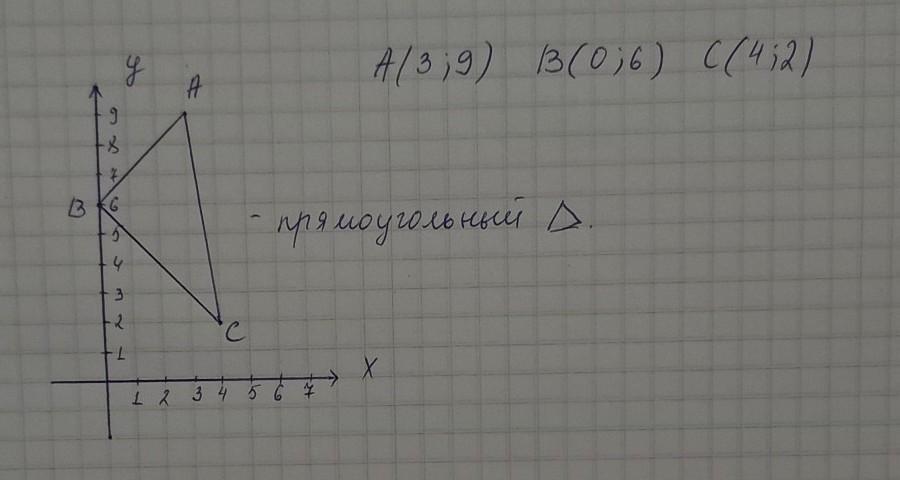 y
A(3;9) B(0;6) C(4;2)
A
9
8
7
B 6
- прямоугольный Δ.
5
4
3
2
C
1
X
1 2 3 4 5 6 7